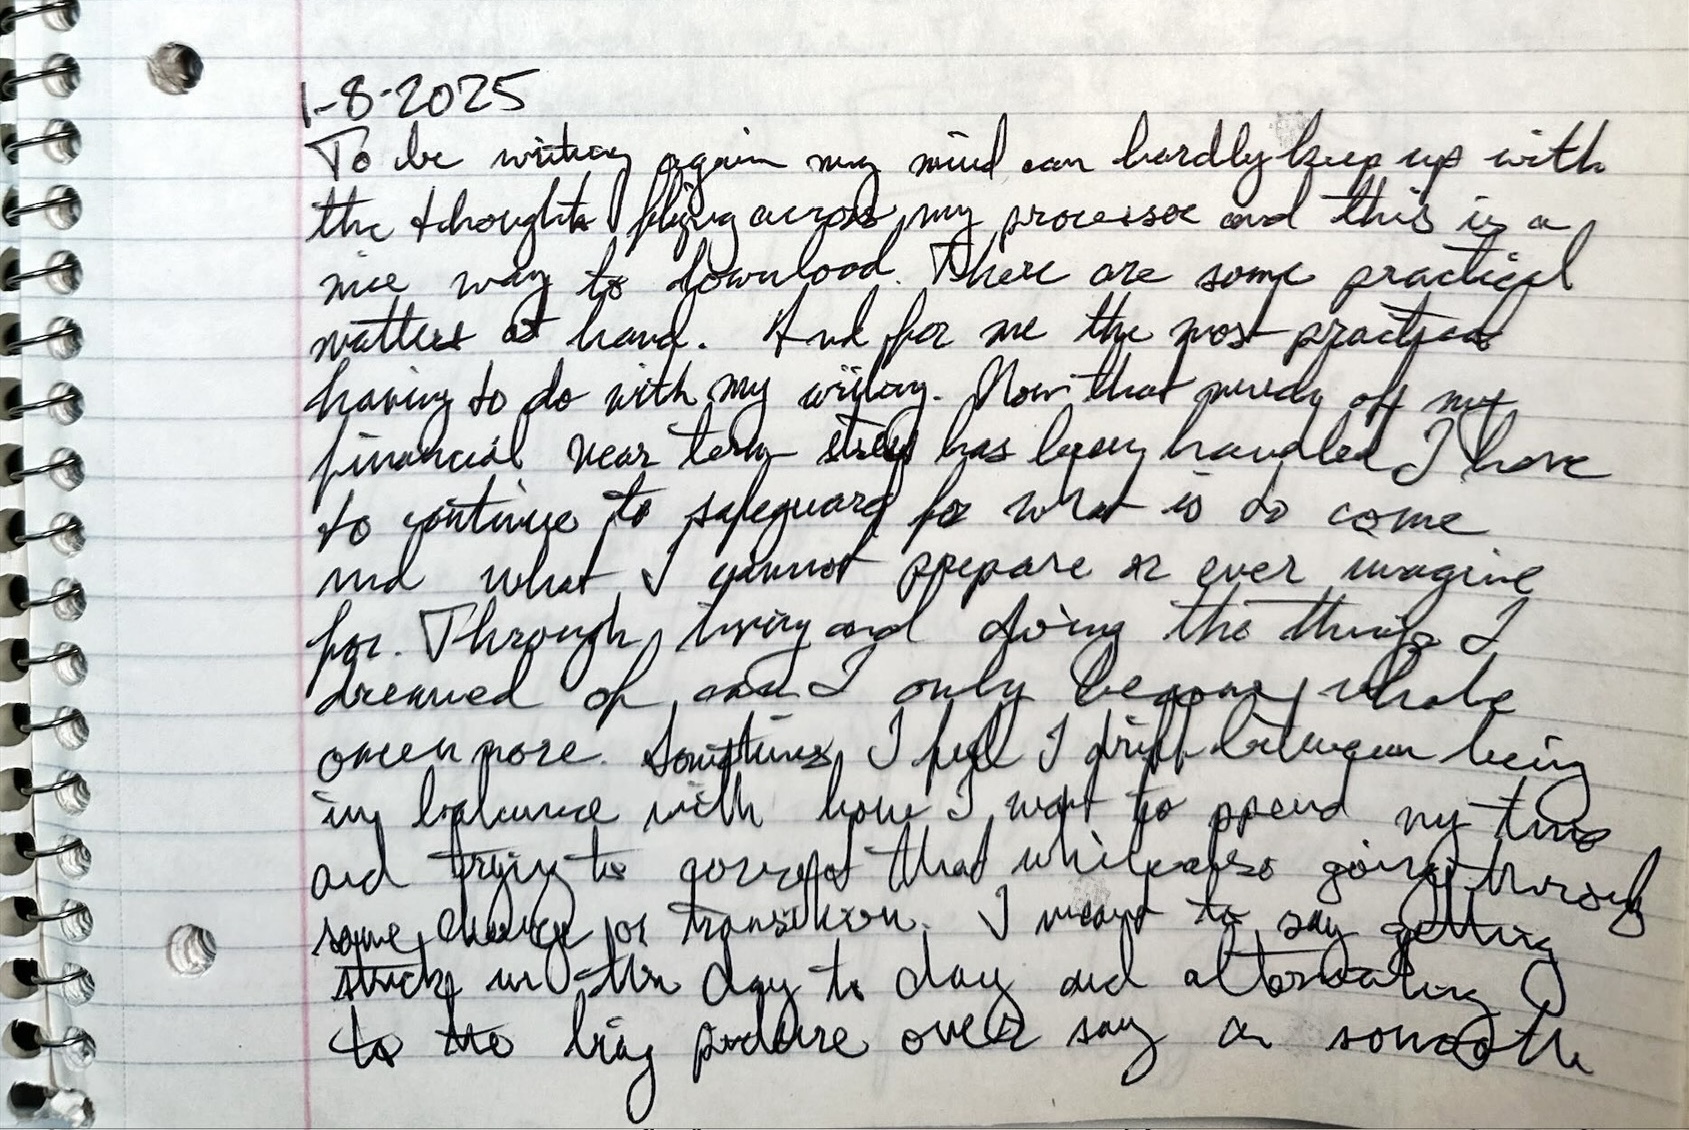 1-8-2025
To be writing again my mind can hardly keep up with
the thoughts flying across my processor and this is a
nice way to download. There are some practical
matters at hand. And for me the most practical
having to do with my writing. Now that much of my
financial near term stress has been handled I have
to continue to safeguard for what is to come
and what I cannot prepare or ever imagine
for. Through trying and doing the things I
dreamed of can I only become whole
once more. Sometimes I feel I drift between being
in balance with how I want to spend my time
and trying to correct that while also going through
some change or transition. I meant to say getting
stuck in the day to day and alternating
to the big picture over say a